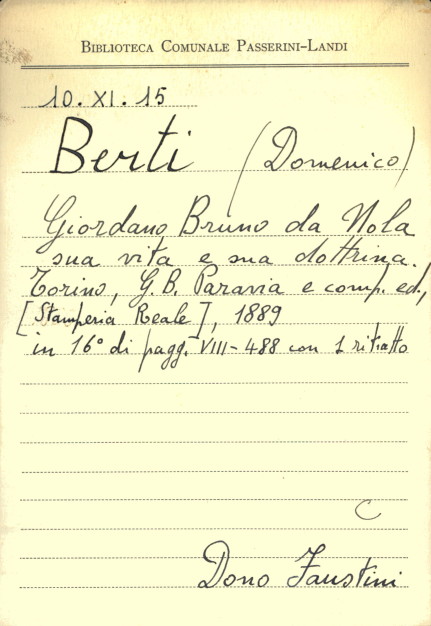 BIBLIOTECA COMUNALE PASSERINI-LANDI
10. XI. 15
Berti (Domenico)
Giordano Bruno da Nola
sua vita e sua dottrina.
Torino, G. B. Paravia e comp. ed.,
[Stamperia Reale], 1889
in 16° di pagg. VIII-488 con 1 ritratto
C
Dono Faustini